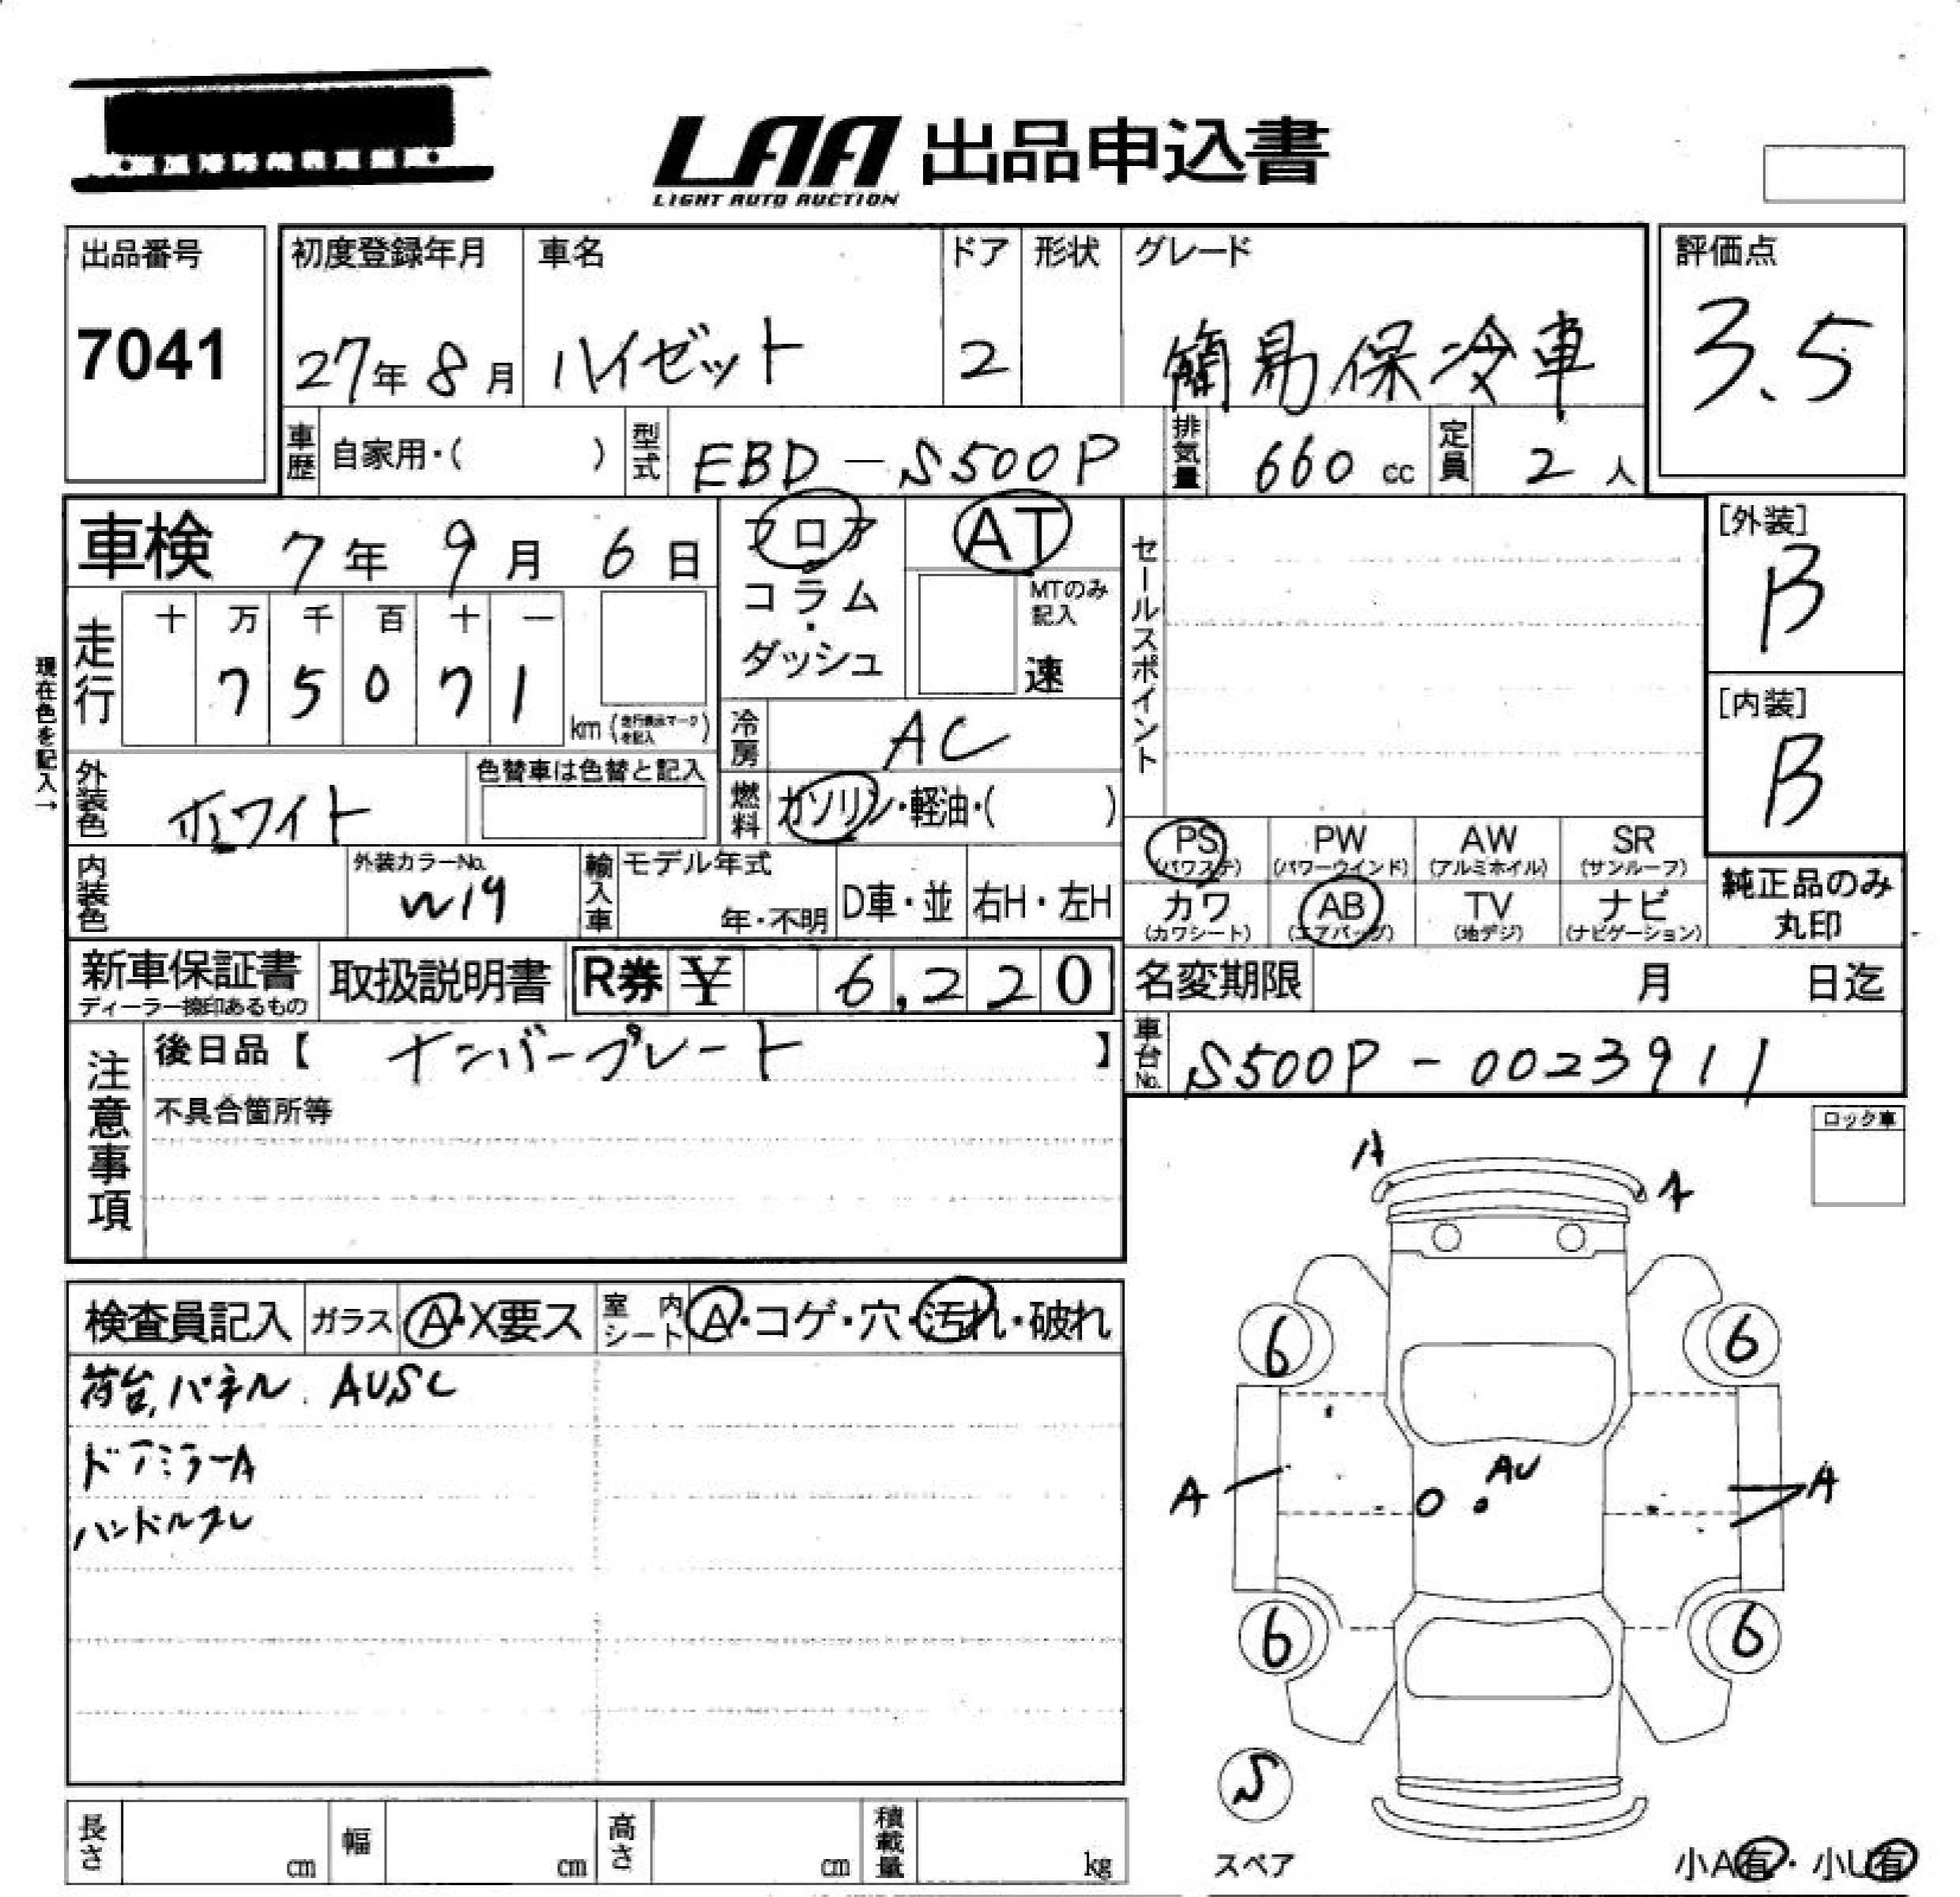 LAA 出品申込書
LIGHT AUTO AUCTION
出品番号
7041
初度登録年月
27年8月
車名
ハイゼット
ドア
2
形状
グレード
簡易保冷車
評価点
3.5
車歴 自家用・( )
型式 EBD-S500P
排気量 660 cc
定員 2 人
車検 7年9月6日
フロア
コラム
・
ダッシュ
AT
MTのみ
記入
速
セールスポイント
[外装]
B
[内装]
B
現在色を記入→
走行
十 万 千 百 十 一
7 5 0 7 1
km (走行表示マークを記入)
冷房 AC
外装色 ホワイト
色替車は色替と記入
燃料 ガソリン・軽油・( )
PS
(パワステ)
PW
(パワーウインド)
AW
(アルミホイル)
SR
(サンルーフ)
カワ
(カワシート)
AB
(エアバッグ)
TV
(地デジ)
ナビ
(ナビゲーション)
純正品のみ
丸印
内装色
外装カラーNo.
W19
輸入車
モデル年式
年・不明
D車・並
右H・左H
新車保証書
ディーラー捺印あるもの
取扱説明書
R券 ¥ 6,220
名変期限 月 日迄
車台No. S500P-0023911
注意事項
後日品【 ナンバープレート 】
不具合箇所等
ロック車
検査員記入
ガラス A・X要ス
室内シート A・コゲ・穴・汚れ・破れ
荷台,パネル.AUSC
ドアミラーA
ハンドルスレ
A
A
6
6
AU
A
A
6
6
S
スペア
小A有・小U有
長さ cm
幅 cm
高さ cm
積載量 kg